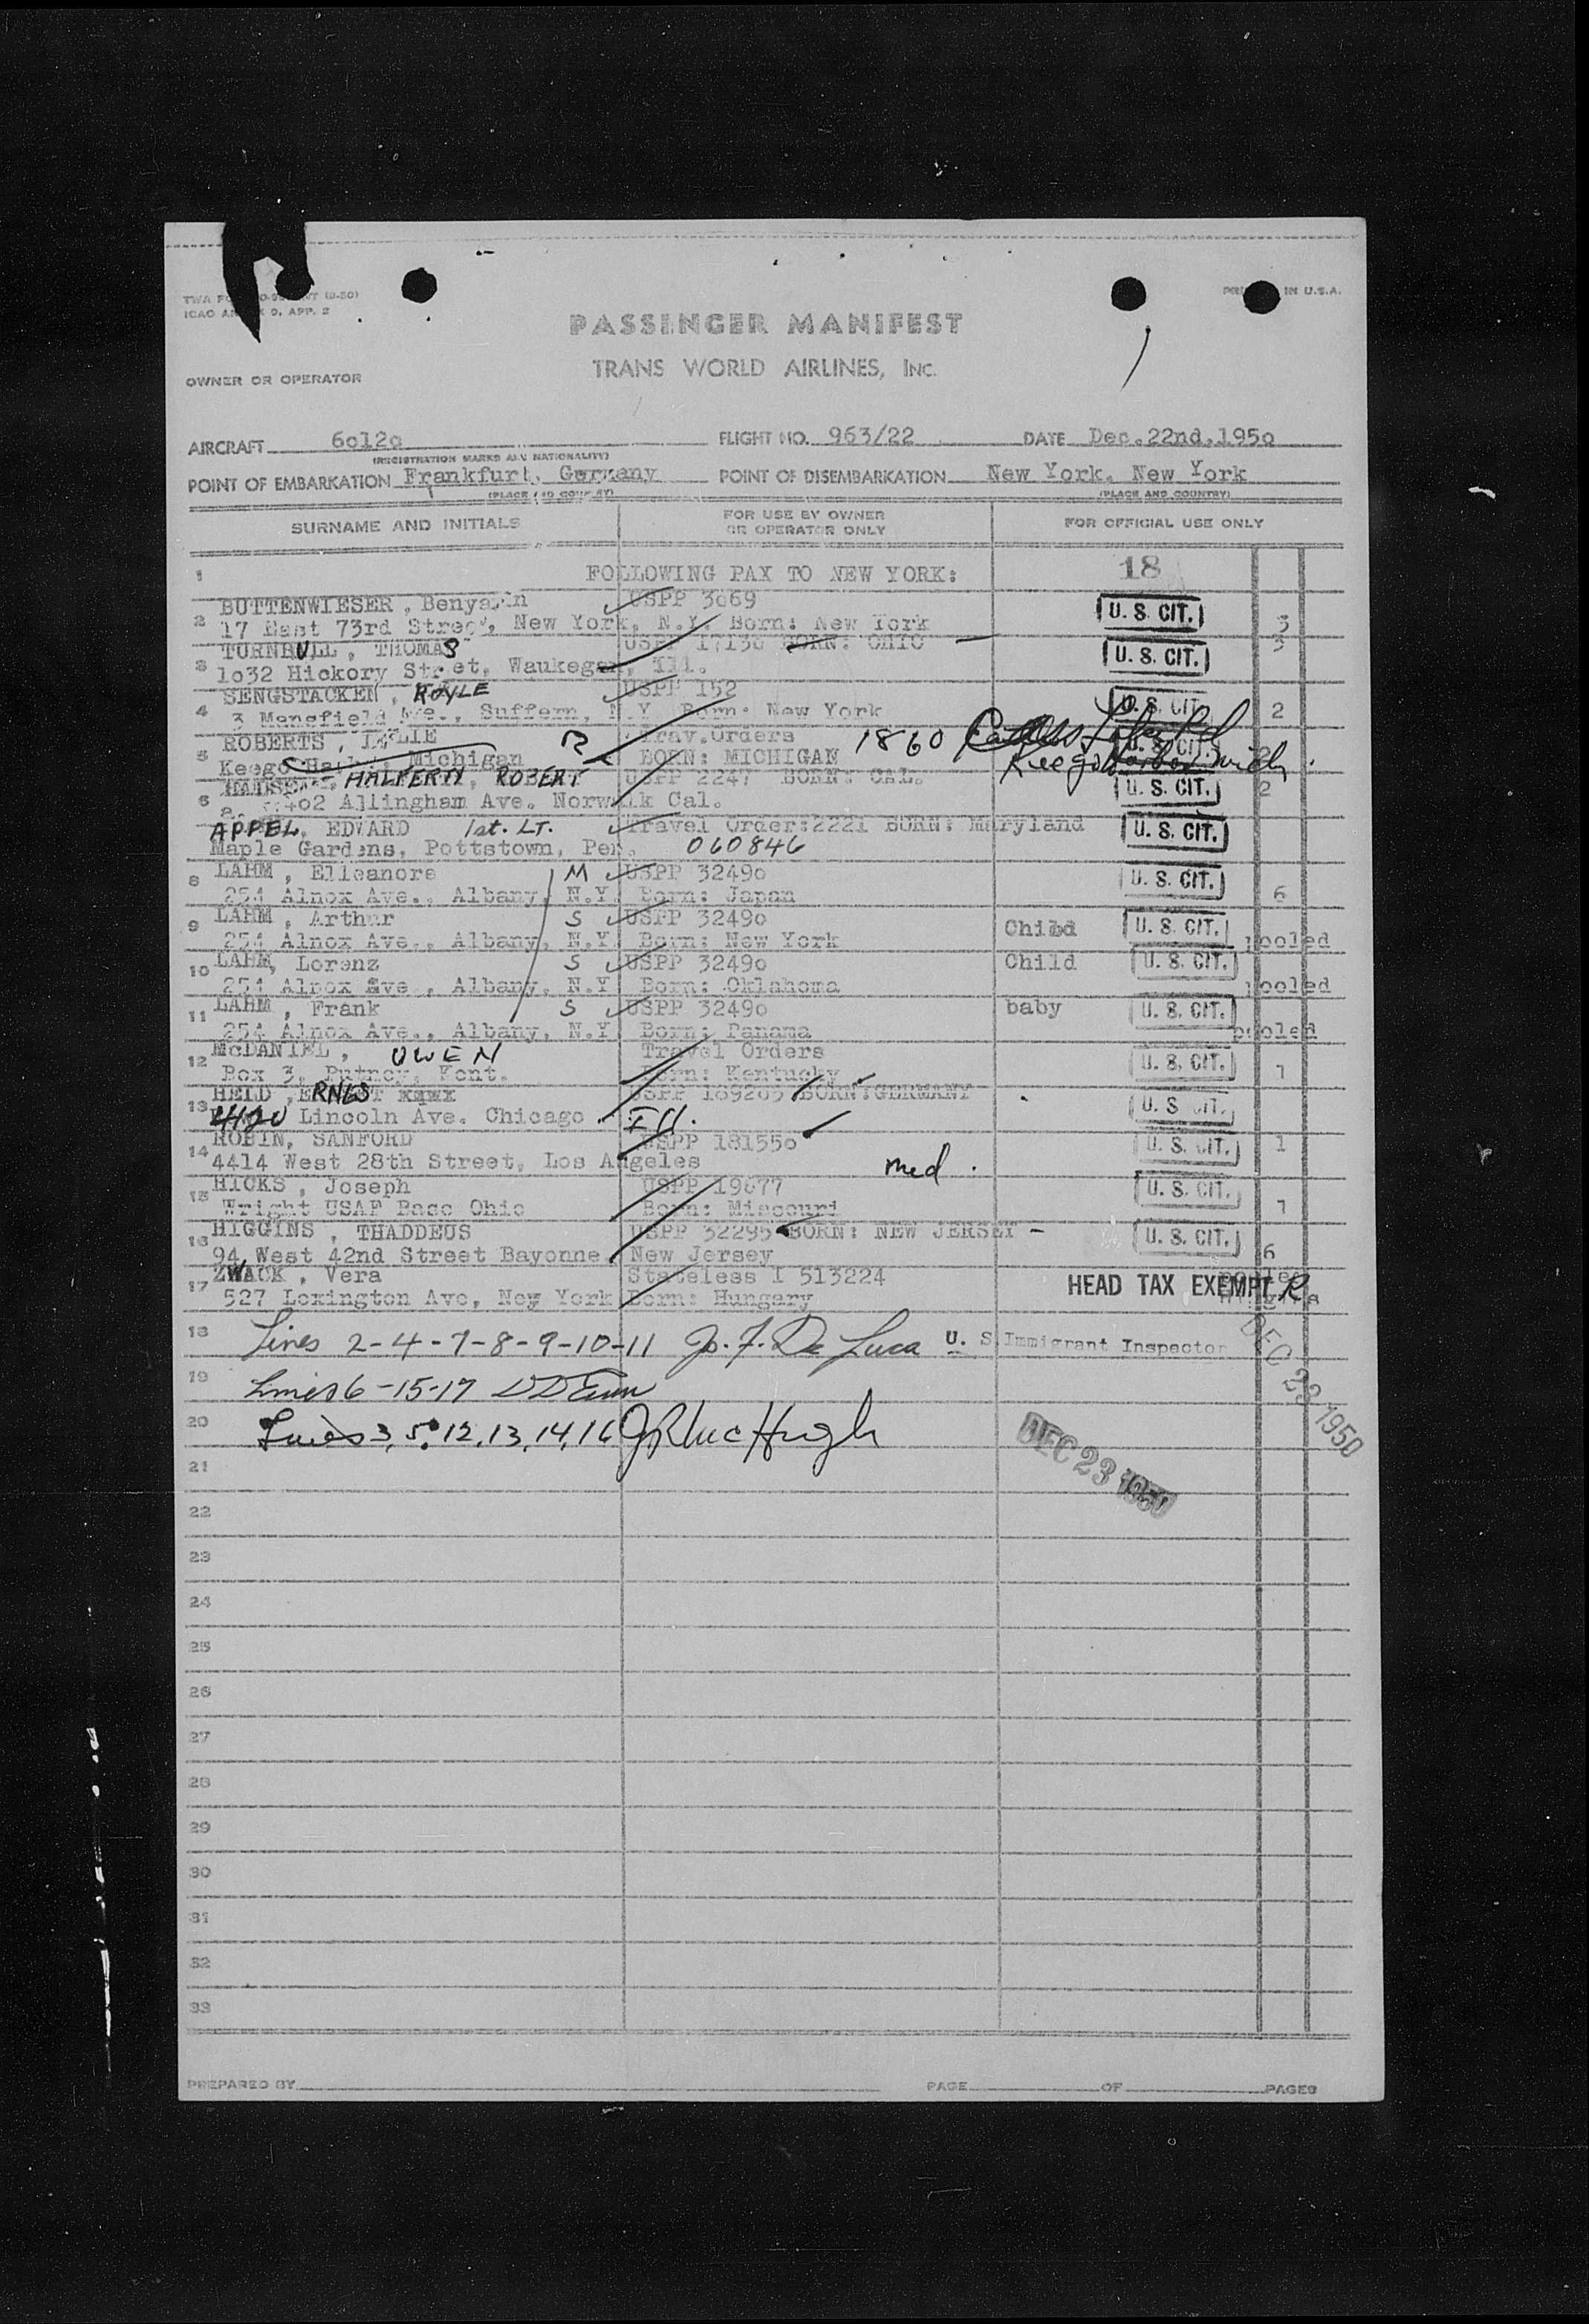 PASSENGER MANIFEST
TRANS WORLD AIRLINES, INC.
IN U.S.A.
OWNER OR OPERATOR
AIRCRAFT 6o12o FLIGHT NO. 963/22 DATE Dec.22nd.195o
(REGISTRATION MARKS AND NATIONALITY)
POINT OF EMBARKATION Frankfurt, Germany POINT OF DISEMBARKATION New York, New York
(PLACE AND COUNTRY) (PLACE AND COUNTRY)
SURNAME AND INITIALS FOR USE BY OWNER OR OPERATOR ONLY FOR OFFICIAL USE ONLY
1 FOLLOWING PAX TO NEW YORK: 18
2 BUTTENWIESER, USPP 3o69 U. S. CIT.
17 East 73rd Street, New York, N.Y. Born: New York 3
3 TURNBULL, THOMAS USPP 17136 BORN: OHIO U. S. CIT. 3
1o32 Hickory Street, Waukegan, Ill.
4 SENGSTACKEN, ROYLE USPP 152 U. S. CIT. 2
3 Mansfield Ave., Suffern, N.Y. Born: New York
5 ROBERTS, LESLIE R Trav.Orders 1860 U. S. CIT.
Keego Michigan BORN: MICHIGAN Keego Harbor Mich.
6 HALFERTY, ROBERT USPP 2247 BORN: CAL. U. S. CIT. 2
Allingham Ave. Norwalk Cal.
APPEL, EDWARD 1st. LT. Travel Order:2221 BORN: Maryland U. S. CIT.
Maple Gardens, Pottstown, Pen. 060846
8 LAHM, Elleanore M USPP 3249o U. S. CIT.
254 Alnox Ave., Albany, N.Y. Born: Japan 6
9 LAHM, Arthur S USPP 3249o Child U. S. CIT.
254 Alnox Ave., Albany, N.Y. Born: New York pooled
10 LAHM, Lorenz S USPP 3249o Child U. S. CIT.
254 Alnox Ave., Albany, N.Y. Born: Oklahoma pooled
11 LAHM, Frank S USPP 3249o baby U. S. CIT.
254 Alnox Ave., Albany, N.Y. Born: Panama pooled
12 McDANIEL, OWEN Travel Orders U. S. CIT.
Box 3, Putney, Kent. Born: Kentucky 1
13 HELD, USPP 189265 BORN:GERMANY U. S. CIT.
4120 Lincoln Ave. Chicago. Ill.
14 ROBIN, SANFORD USPP 18155o U. S. CIT. 1
4414 West 28th Street, Los Angeles med.
15 HICKS, Joseph USPP 19677 U. S. CIT.
Wright USAF Base Ohio Born: Missouri 1
16 HIGGINS, THADDEUS USPP 32295 BORN: NEW JERSEY - U. S. CIT.
94 West 42nd Street Bayonne. New Jersey 6
17 ZWACK, Vera Stateless I 513224 HEAD TAX EXEMPT R
527 Lexington Ave, New York Born: Hungary
18 Lines 2-4-7-8-9-10-11 Jo. F. De Luca U. S. Immigrant Inspector
DEC 23 1950
19 Lines 6-15-17
20 Lines 3, 5, 12, 13, 14, 16 J R McHugh
DEC 23 1950
21
22
23
24
25
26
27
28
29
30
31
32
33
PREPARED BY PAGE OF PAGES